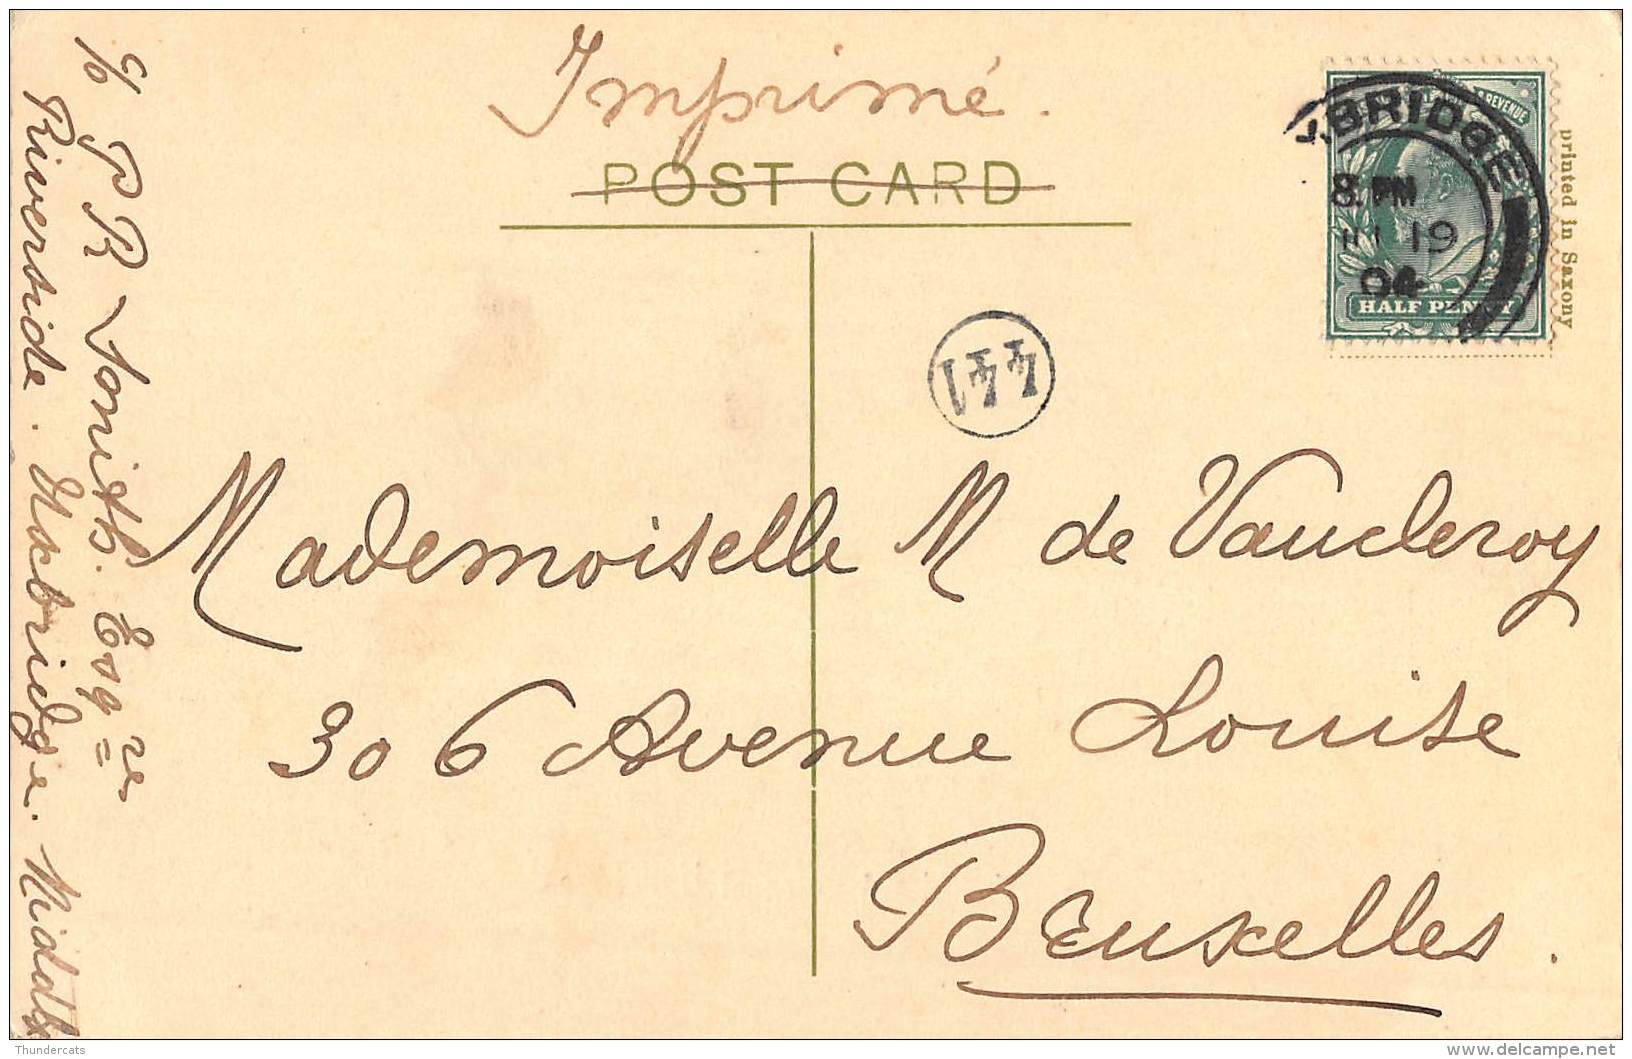 Imprimé.
POST CARD
& REVENUE
UXBRIDGE
8. PM
19
04
HALF PENNY
printed in Saxony
441
Mademoiselle M de Vaucleroy
306 Avenue Louise
Bruxelles.
c/o P R Smith. Esqre
Riverside. Uxbridge. Middlx
Thundercats
delcampe.net